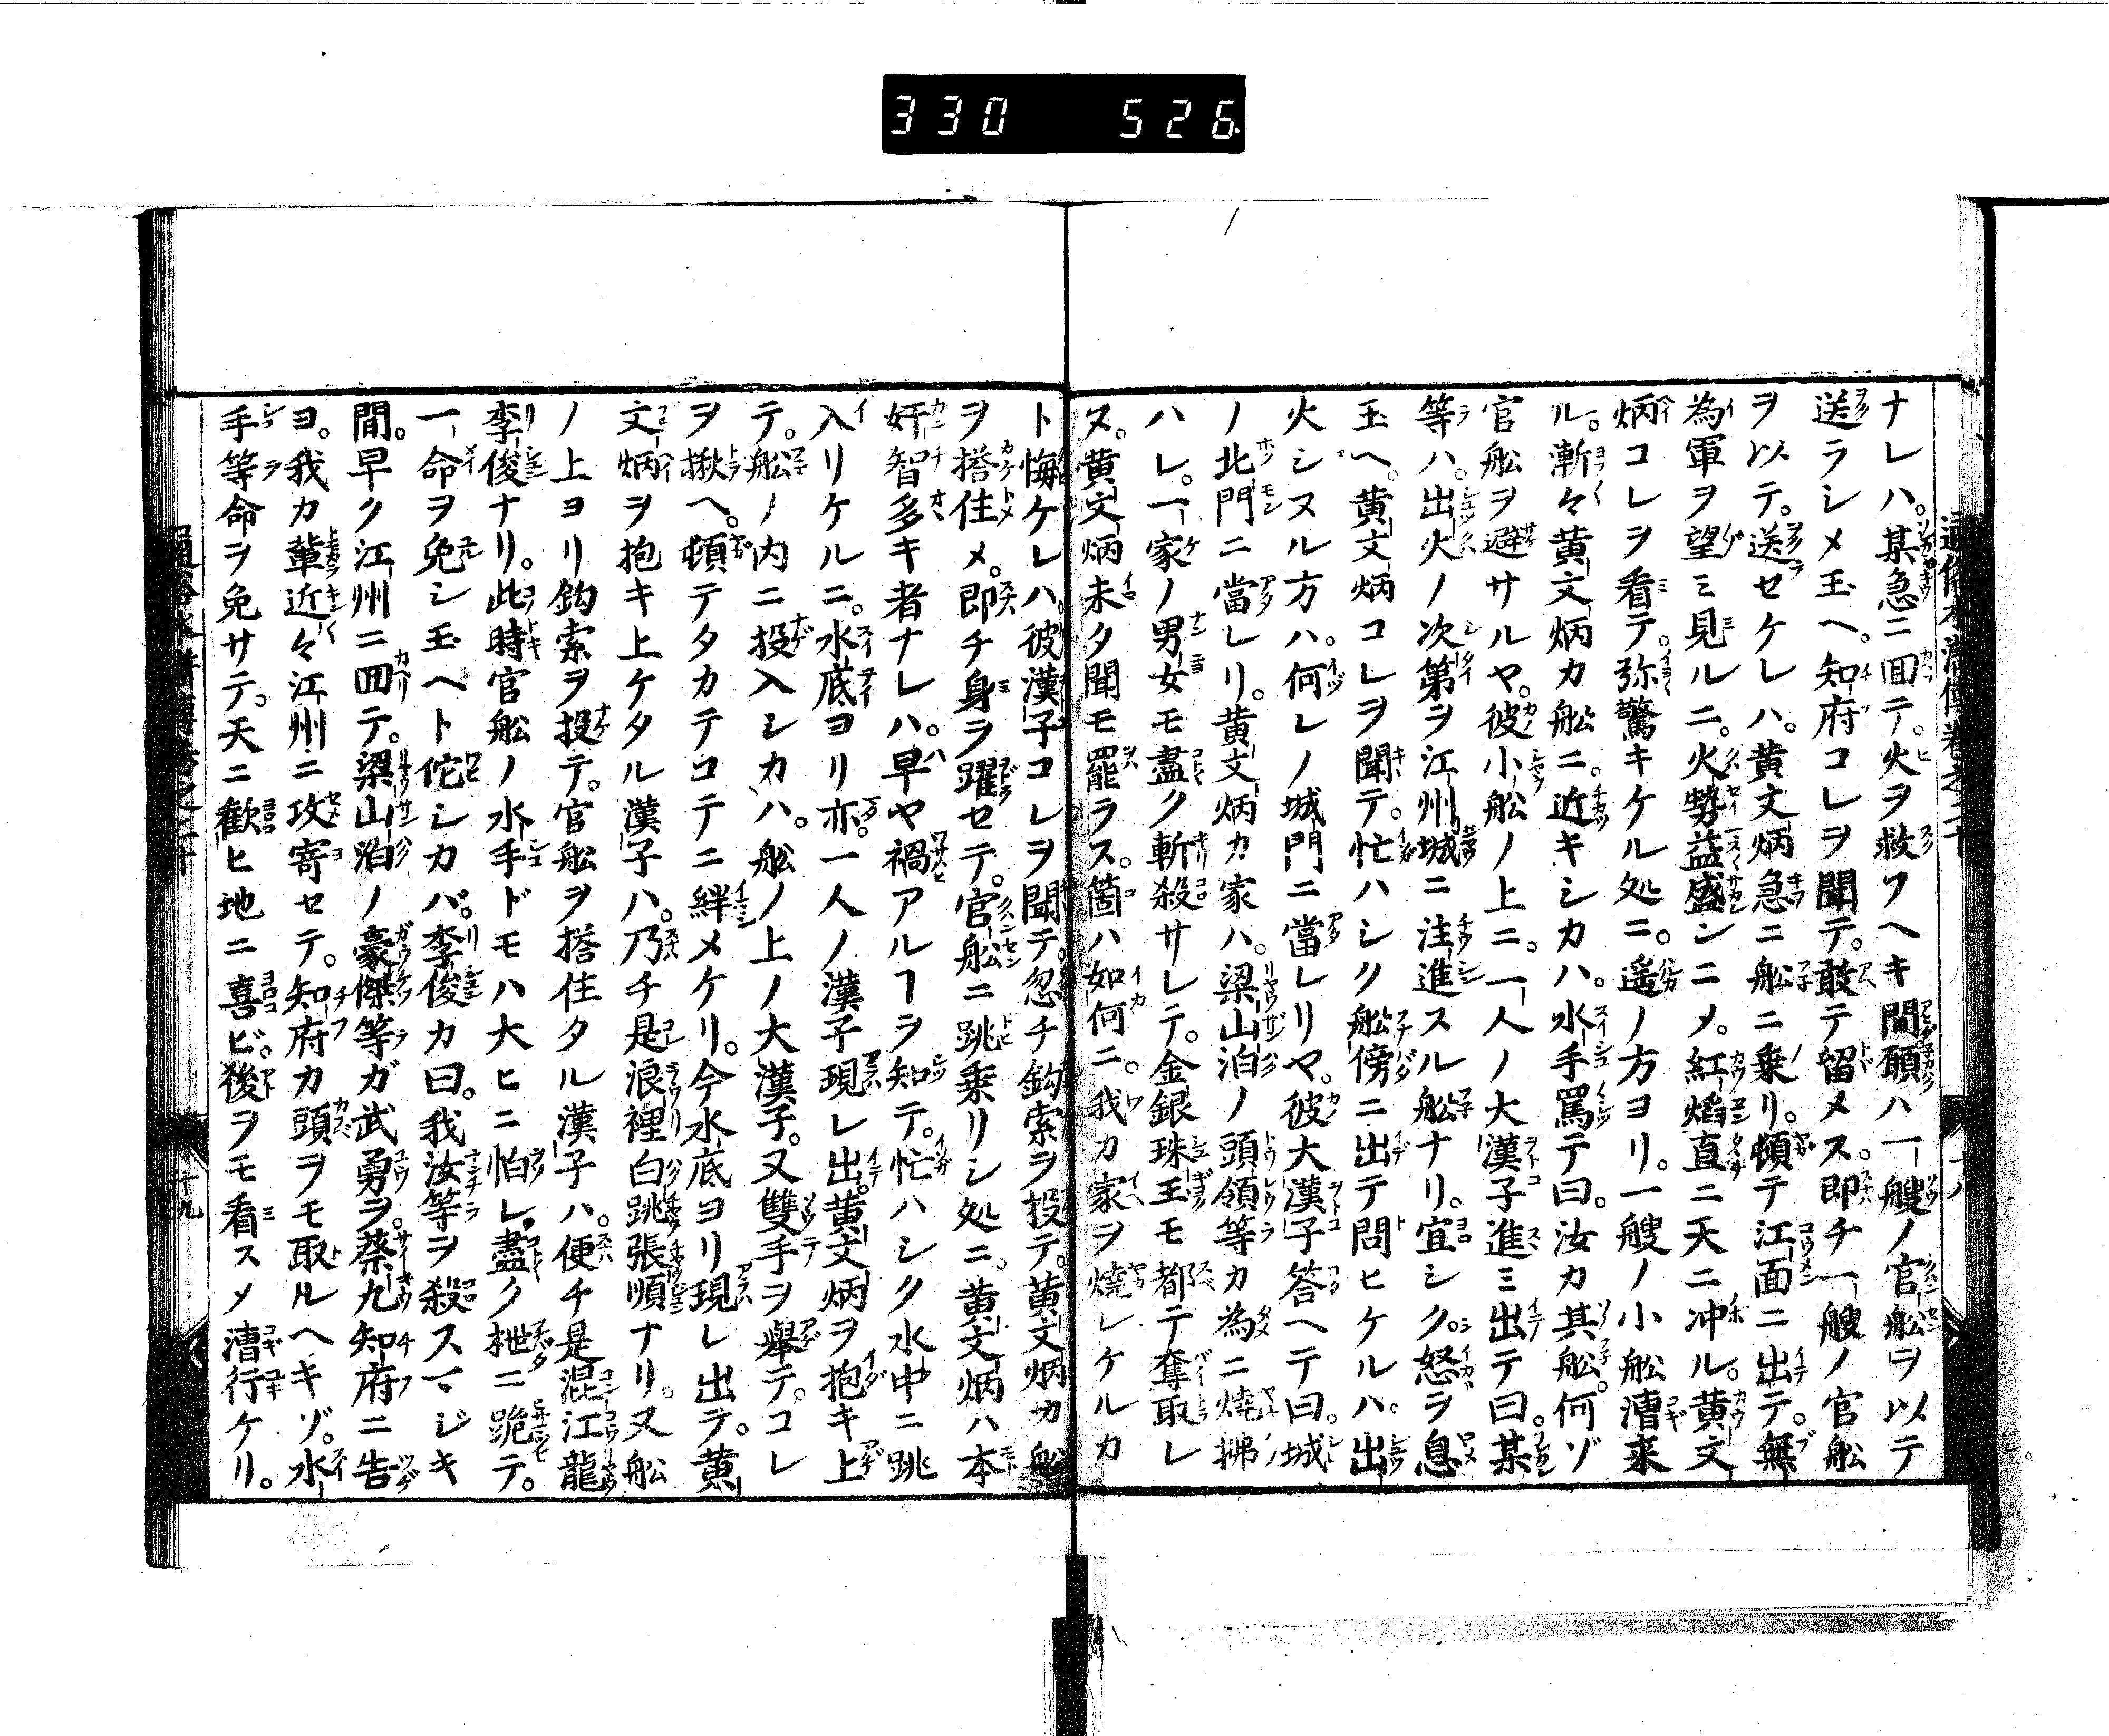 330 526
ナレハ。某急ニ囬テ。火ヲ救フヘキ間。願ハ一艘ノ官舩ヲ以テ
送ラシメ玉ヘ。知府コレヲ聞テ。敢テ留メス。即チ一艘ノ官舩
ヲ以テ。送セケレハ。黄文炳急ニ舩ニ乗リ。頓テ江面ニ出テ。無
為軍ヲ望ミ見ルニ。火勢益盛ンニメ。紅焰直ニ天ニ冲ル。黄文
炳コレヲ看テ。弥驚キケル処ニ。遥ノ方ヨリ。一艘ノ小舩漕来
ル。漸々黄文炳カ舩ニ近キシカハ。水手罵テ曰。汝カ其舩。何ゾ
官舩ヲ避サルヤ。彼小舩ノ上ニ。一人ノ大漢子進ミ出テ曰。某
等ハ。出火ノ次第ヲ江州城ニ注進スル舩ナリ。宜シク。怒ヲ息
玉ヘ。黄文炳コレヲ聞テ。忙ハシク舩傍ニ出テ問ヒケルハ。出
火シヌル方ハ。何レノ城門ニ當レリヤ。彼大漢子答ヘテ曰。城
ノ北門ニ當レリ。黄文炳カ家ハ。梁山泊ノ頭領等カ為ニ焼拂
ハレ。一家ノ男女モ盡ク斬殺サレテ。金銀珠玉モ都テ奪取レ
ヌ。黄文炳未タ聞モ罷ラス。箇ハ如何ニ。我カ家ヲ燒レケルカ
ト悔ケレハ。彼漢子コレヲ聞テ。忽チ鈎索ヲ投テ。黄文炳カ舩
ヲ搭住メ。即チ身ヲ躍セテ。官舩ニ跳乗リシ処ニ。黄文炳ハ本
奸智多キ者ナレハ。早ヤ禍アルヿヲ知テ。忙ハシク水中ニ跳
入リケルニ。水底ヨリ亦。一人ノ漢子現レ出。黄文炳ヲ抱キ上
テ。舩ノ内ニ投入シカハ。舩ノ上ノ大漢子。又雙手ヲ舉テ。コレ
ヲ揪ヘ。頓テタカテコテニ絆メケリ。今水底ヨリ現レ出テ。黄
文炳ヲ抱キ上ケタル漢子ハ。乃チ是浪裡白跳張順ナリ。又舩
ノ上ヨリ鈎索ヲ投テ。官舩ヲ搭住タル漢子ハ。便チ是混江龍
李俊ナリ。此時官舩ノ水手ドモハ大ヒニ怕レ。盡ク枻ニ跪テ。
一命ヲ免シ玉ヘト佗シカバ。李俊カ曰。我汝等ヲ殺スマジキ
間。早ク江州ニ囬テ。梁山泊ノ豪傑等ガ武勇ヲ。蔡九知府ニ告
ヨ。我カ輩近々江州ニ攻寄セテ。知府カ頭ヲモ取ルヘキゾ。水
手等命ヲ免サテ。天ニ歡ヒ地ニ喜ビ。後ヲモ看スメ漕行ケリ。
十九